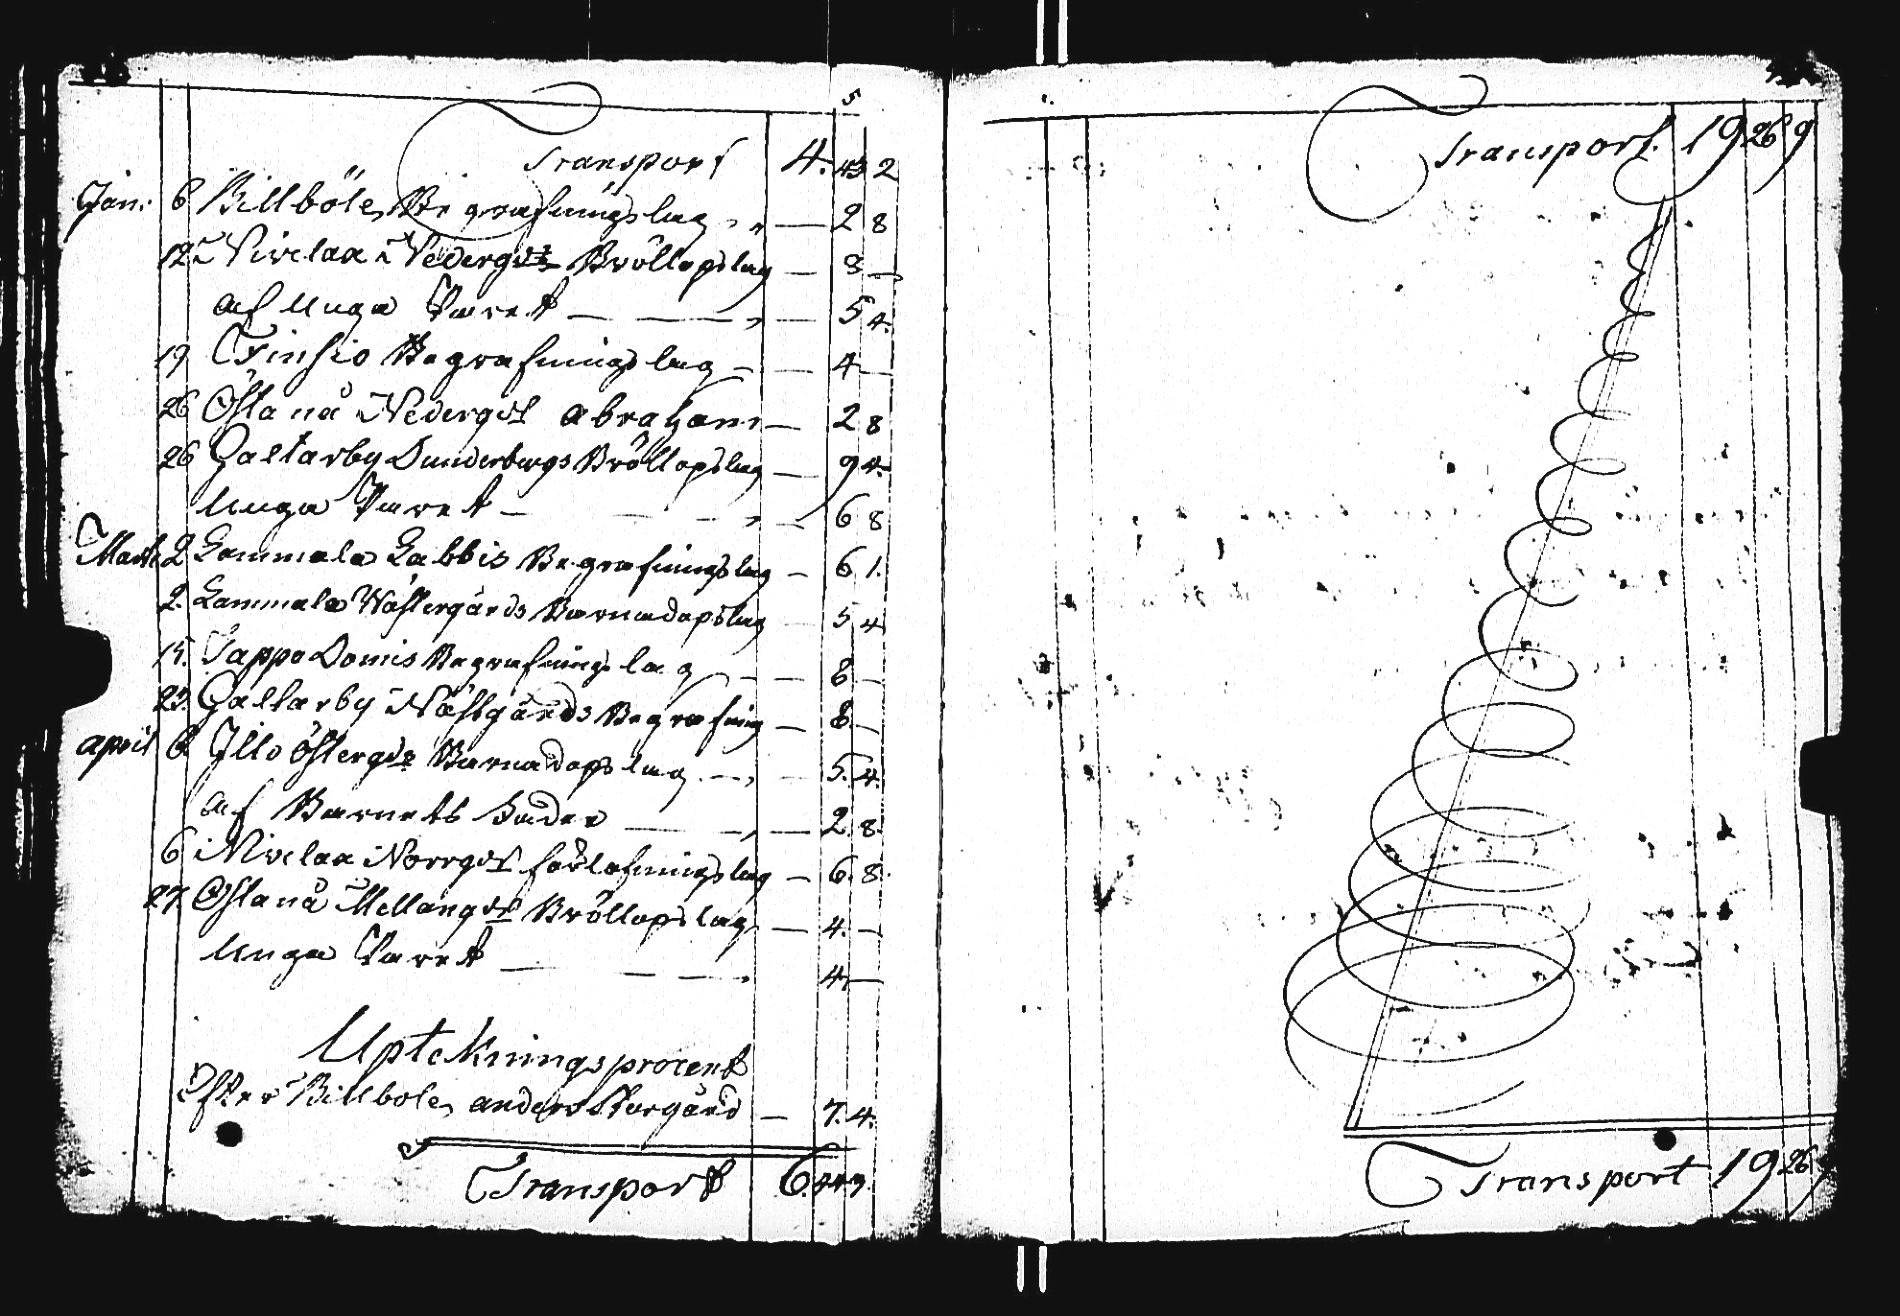 5
Transport 4. 43 2
Jan: 6 Billböle Begrafningslag " — 2 8
12 Nivelax Nedergds Bröllopslag — 8 —
af Unga Paret — — " — 5 4.
19 Finsio Begrafningslag — 4 —
26 Östanå Nedergd Abraham — 2 8
26 Galtarby Dunderbergs Bröllopslag — 9 4.
Unga Paret — — " — 6 8
Marti 2 Gammala Labbis Begrafningslag — 6 1.
2. Gammala Wästergårds Barnadopslag 5 4
15. Jappo Domis Begrafningslag — 8 —
23. Galtarby Nästgårds Begrafning — 8 —
april 6 Illo östergds Barnadopslag — 5. 4.
af Barnets fader — " — 2 8.
6 Nivelax Norrgd förlofningslag — 6. 8.
27. Östanå Mellangd Bröllopslag — 4. —
Unga Paret — — 4 —
Uptekningsprocent
Efter Billböle anders Storgård — 7. 4.
Transport 6.
Transport. 19 26 9
Transport 19 26 9